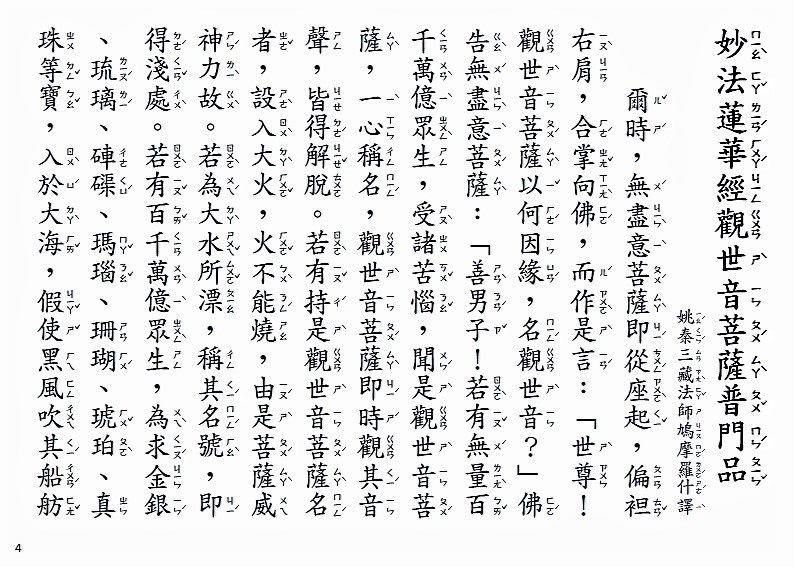 妙法蓮華經觀世音菩薩普門品
姚秦三藏法師鳩摩羅什譯
爾時，無盡意菩薩即從座起，偏袒
右肩，合掌向佛，而作是言：「世尊！
觀世音菩薩以何因緣，名觀世音？」佛
告無盡意菩薩：「善男子！若有無量百
千萬億眾生，受諸苦惱，聞是觀世音菩
薩，一心稱名，觀世音菩薩即時觀其音
聲，皆得解脫。若有持是觀世音菩薩名
者，設入大火，火不能燒，由是菩薩威
神力故。若為大水所漂，稱其名號，即
得淺處。若有百千萬億眾生，為求金銀
、琉璃、硨磲、瑪瑙、珊瑚、琥珀、真
珠等寶，入於大海，假使黑風吹其船舫
4